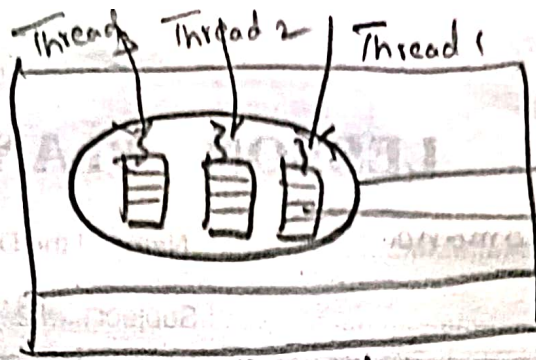 Thread 3 Thread 2 Thread 1